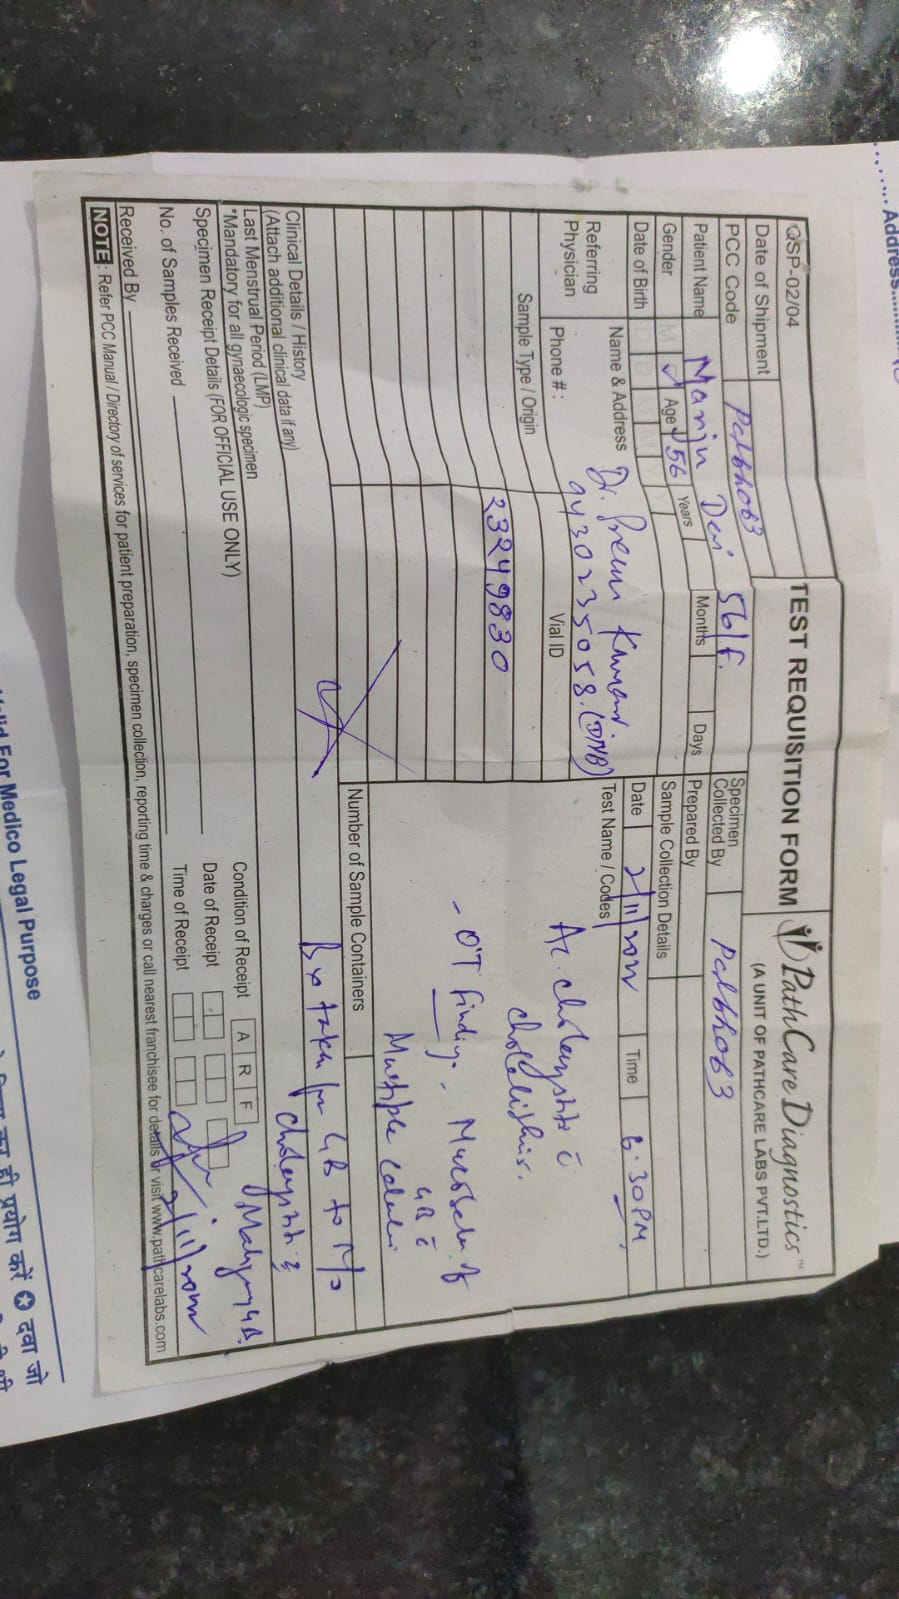 Address
QSP-02/04
TEST REQUISITION FORM
PathCare Diagnostics™
(A UNIT OF PATHCARE LABS PVT.LTD.)
Date of Shipment
PCC Code
Specimen
Collected By
Patient Name Manju Devi 56/F.
Prepared By
Gender M ✓ Age 56 Years Months Days
Sample Collection Details
Date of Birth
Date 2/11/2022 Time 6:30PM
Referring
Physician
Name & Address Dr. Prem Kumar.
Phone #: 9430235058. (DNB)
Test Name / Codes
Sample Type / Origin
Vial ID
23249830
Ac. cholecystitis c̄
cholelithiasis.
- OT findings - Mucocele of
GB c̄
Multiple calculi
Number of Sample Containers
Bx taken from GB to r/o
Clinical Details / History
(Attach additional clinical data if any)
cholecystitis ?
Malignancy GB.
Last Menstrual Period (LMP)
*Mandatory for all gynaecologic specimen
Specimen Receipt Details (FOR OFFICIAL USE ONLY)
Condition of Receipt A R F
Date of Receipt
No. of Samples Received
Time of Receipt
2/11/2022
Received By
NOTE : Refer PCC Manual / Directory of services for patient preparation, specimen collection, reporting time & charges or call nearest franchisee for details or visit www.pathcarelabs.com
Valid For Medico Legal Purpose
का ही प्रयोग करें ✪ दवा जो